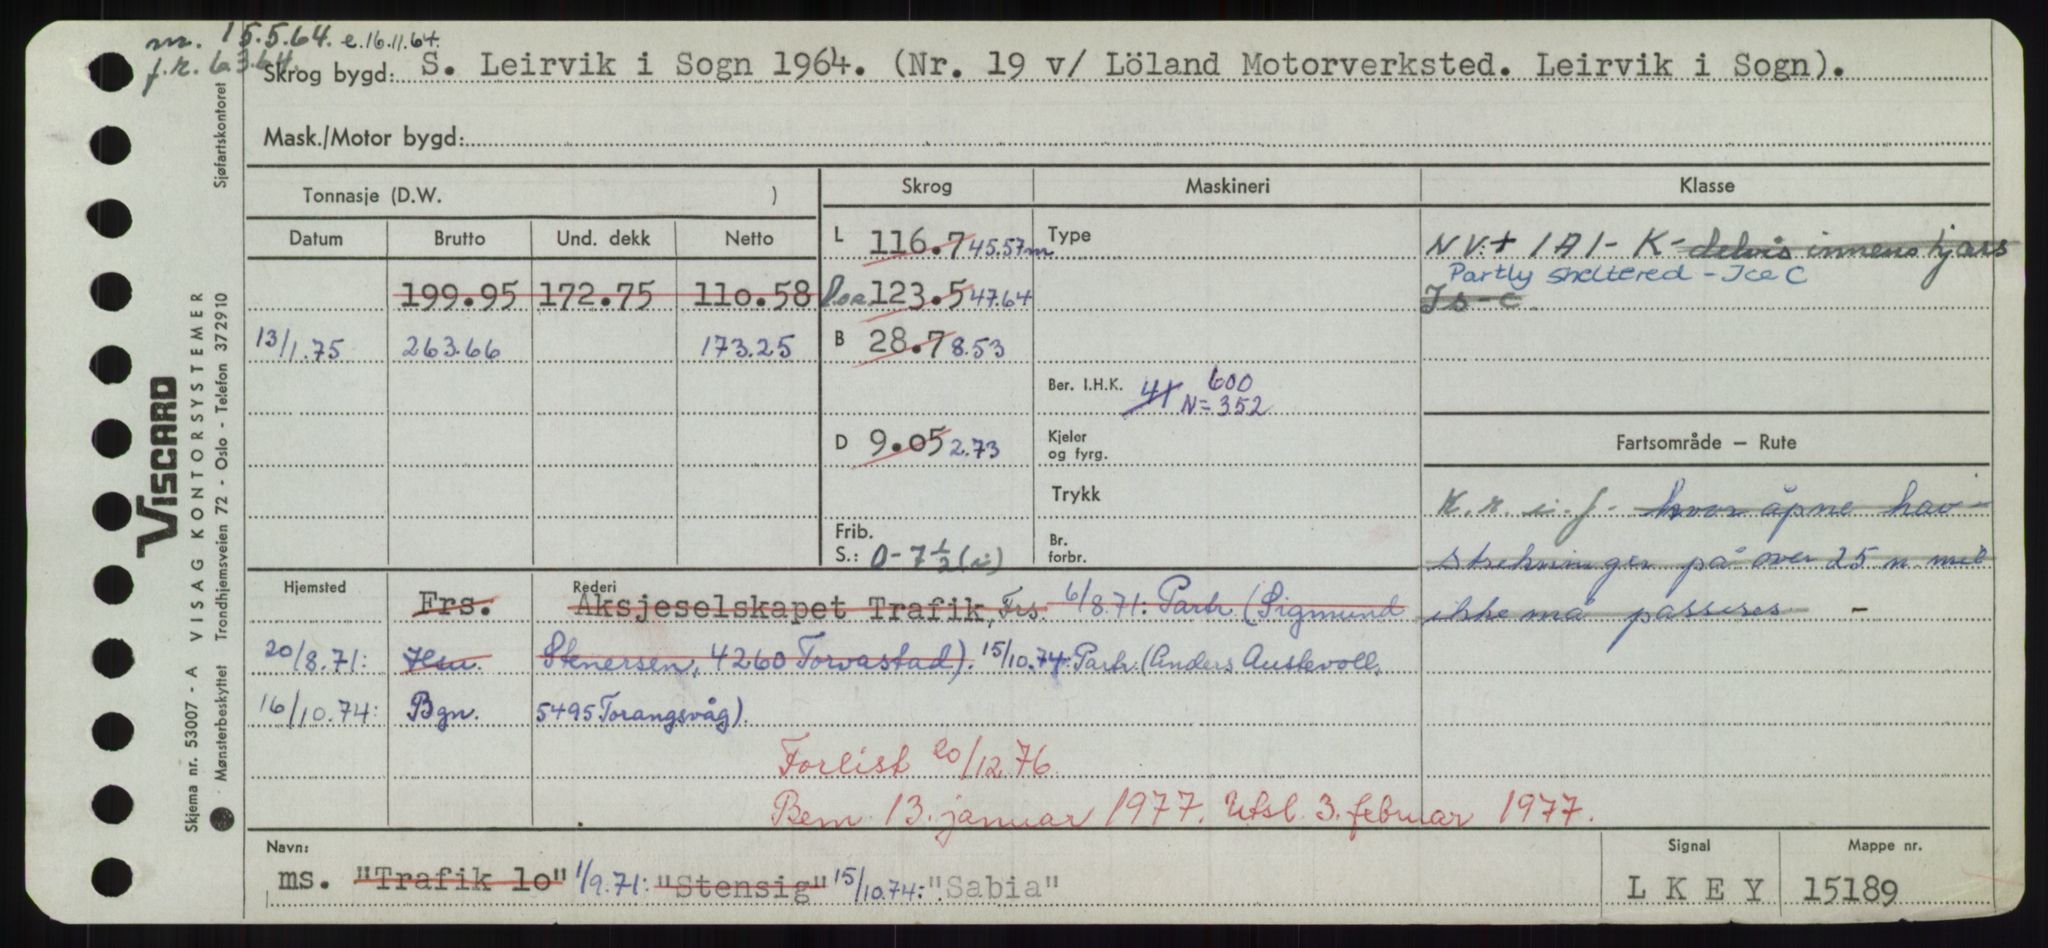 m. 15.5.64. e.16.11.64.
f.k. 6.3.64.
Skrog bygd: S. Leirvik i Sogn 1964. (Nr. 19 v/ Löland Motorverksted. Leirvik i Sogn).
Mask./Motor bygd:
Tonnasje (D.W. ) Skrog Maskineri Klasse
Datum Brutto Und. dekk Netto L 116.7 45.57m Type NV.+ 1A1- K- delvis innenskjærs
Partly sheltered - Ice C
199.95 172.75 110.58 Lpr. 123.5 47.64 Is-C
13/1.75 263.66 173.25 B 28.7 8.53
Ber. I.H.K. 41 600
N=352
D 9.05 2.73 Kjeler og fyrg. Fartsområde – Rute
Trykk K.r.i.f. hvor åpne hav-
Frib.
S.: 0-7½(i) Br. forbr. strekninger på over 25 n. mil
Hjemsted Frs. Rederi Aksjeselskapet Trafik, Frs. 6/8.71: Partr. (Sigmund ikke må passeres –
20/8.71: Hsu. Stenersen, 4260 Torvastad). 15/10.74: Partr. (Anders Austevoll,
16/10.74: Bgn. 5495 Torangsvåg).
Forlist 20/12.76.
Bem 13. januar 1977. Utsl. 3. februar 1977.
Navn: Signal Mappe nr.
ms. "Trafik lo" 1/9.71: "Stensig" 15/10.74: "Sabia" L K E Y 15189
Skjema nr. 53007 - A VISAG KONTORSYSTEMER
VISCARD
Mønsterbeskyttet Trondhjemsveien 72 - Oslo - Telefon 372910 Sjøfartskontoret